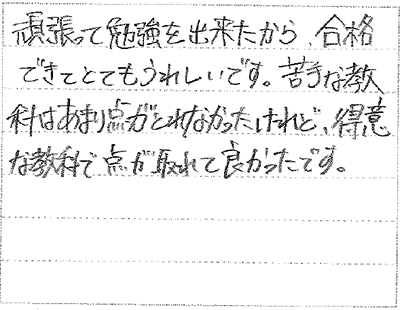 頑張って勉強を出来たから、合格
できてとてもうれしいです。苦手な教
科はあまり点がとれなかったけれど、得意
な教科で点が取れて良かったです。